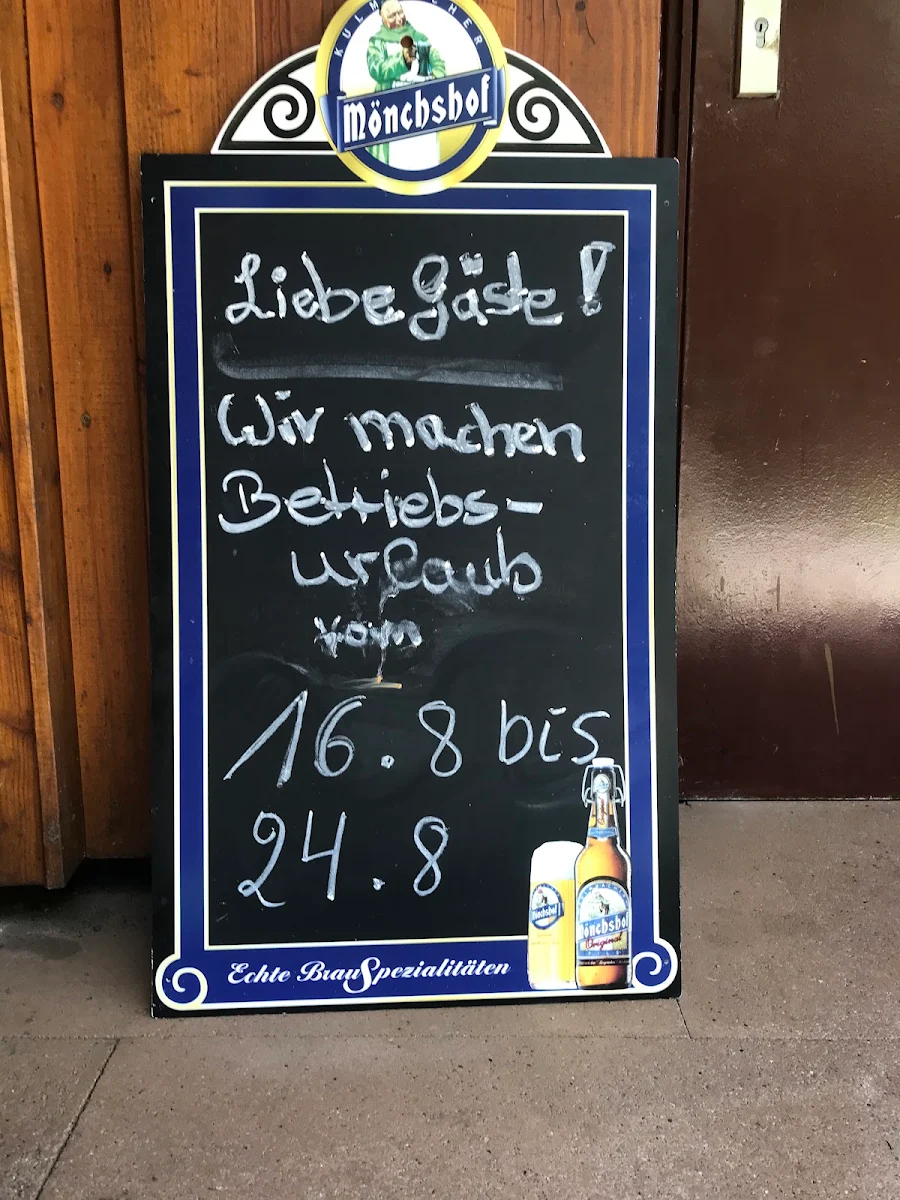 KULMBACHER
Mönchshof
Liebe Gäste!
Wir machen
Betriebs-
urlaub
vom
16.8 bis
24.8
Mönchshof
Mönchshof
Original
Echte BrauSpezialitäten